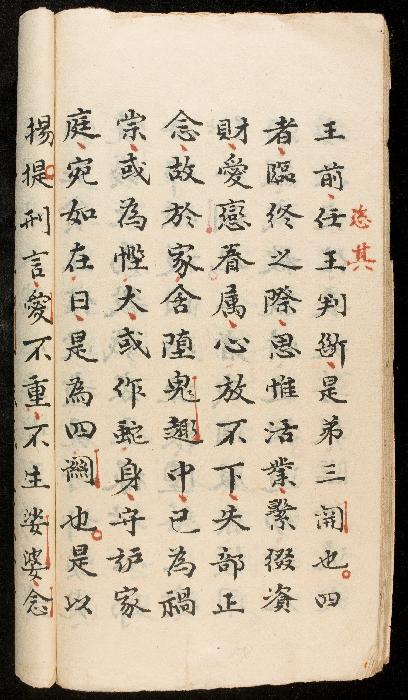 王前任王判斷是弟三開也四
恣其
者臨終之際思惟活業繫綴資
財愛戀眷属心放不下失部正
念故於家舍墮鬼趣中已為禍
祟或為慳犬或作蛇身守护家
庭宛如在日是為四關也是以
揚提刑言愛不重不生娑婆念